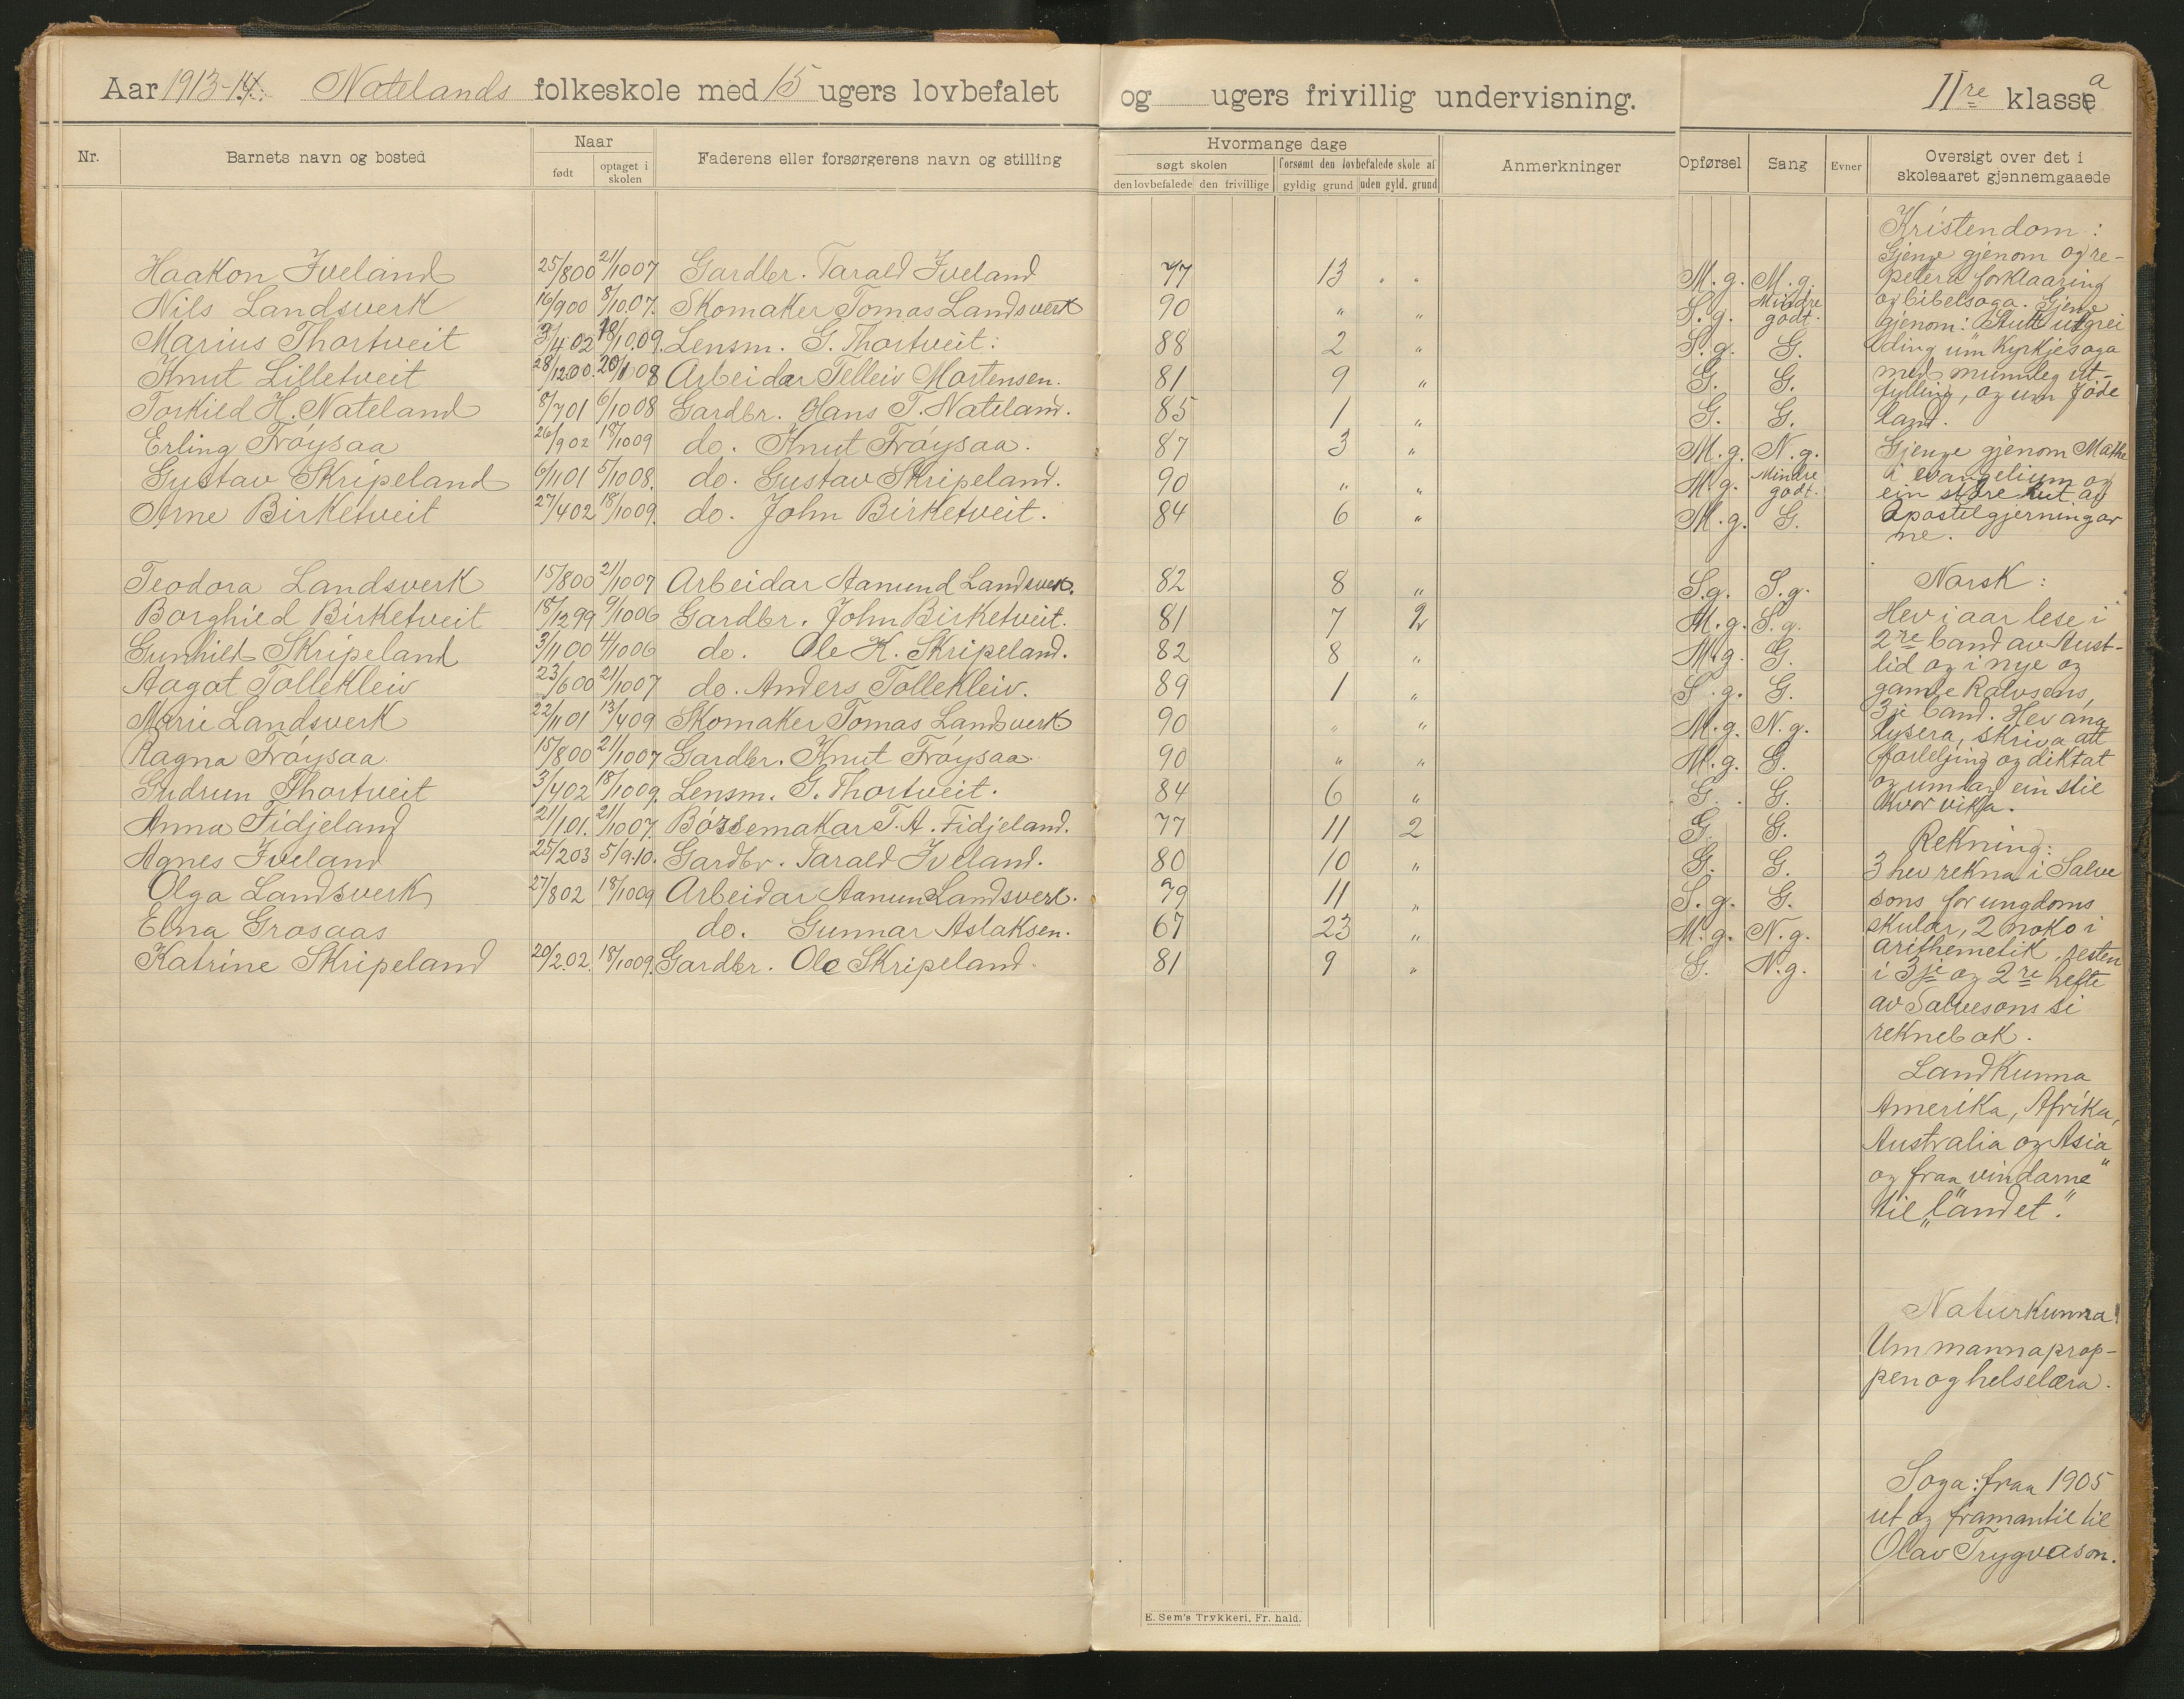 Aar 1913-14. Natelands folkeskole med 15 ugers lovbefalet og ugers frivillig undervisning. IIre klasse a
Nr. Barnets navn og bosted Naar født optaget i skolen Faderens eller forsørgerens navn og stilling Hvormange dage søgt skolen den lovbefalede den frivillige forsømt den lovbefalede skole af gyldig grund uden gyld. grund Anmerkninger Opførsel Sang Evner Oversigt over det i skoleaaret gjennemgaaede
Haakon Iveland 25/8 00 21/10 07 Gardbr. Tarald Iveland 77 13 " " M.g. M.g.
Nils Landsverk 16/9 00 8/10.07. Skomaker Tomas Landsverk 90 " " S.g. Mindre godt.
Marius Thortveit 3/4 02 18/10.09. Lensm. G. Thortveit. 88 2 " S.g. G.
Knut Lilletveit 28/12 00. 20/1 08 Arbeidar Telleiv Mortensen. 81 9 " G. G.
Torkild H. Nateland 8/7 01 6/10 08 Gardbr. Hans T. Nateland. 85 1 " G. G.
Erling Frøysaa 26/9 02 18/10 09 do. Knut Frøysaa. 87 3 " M.g. N.g.
Gustav Skripeland 6/11 01 5/10 08. do. Gustav Skripeland. 90 " " M.g. Mindre godt.
Arne Birketveit 27/4 02 18/10 09. do. John Birketveit. 84 6 " M.g. G.
Teodora Landsverk 15/8 00 21/10 07 Arbeidar Aamund Landsverk. 82 8 " S.g. S.g.
Borghild Birketveit 18/12 99 9/10 06 Gardbr. John Birketveit. 81 7 2 M.g. S.g.
Gunhild Skripeland 3/11 00 4/10 06 do. Ole K. Skripeland. 82 8 " M.g. G.
Aagot Tollekleiv 23/6 00 21/10 07 do. Anders Tollekleiv. 89 1 " S.g. G.
Marie Landsverk 22/11 01 13/4 09 Skomaker Tomas Landsverk 90 " " M.g. N.g.
Ragna Frøysaa. 15/8 00 21/10 07 Gardbr. Knut Frøysaa 90 " " M.g. G.
Gudrun Thortveit 3/4 02 18/10 09. Lensm. G. Thortveit. 84 6 " G. G.
Anna Fidjeland 21/1 01. 21/10 07. Børsemakar T. A. Fidjeland. 77 11 2 G. G.
Agnes Iveland 25/2 03 5/9.10. Gardbr. Tarald Iveland. 80 10 " G. G.
Olga Landsverk 27/8 02 18/10 09 Arbeidar Aamun Landsverk. 79 11 " S.g. G.
Elna Grosaas do. Gunnar Aslaksen. 67 23 " M.g. N.g.
Katrine Skripeland 20/2.02. 18/10 09. Gardbr. Ole Skripeland. 81 9 " G. N.g.
Kristendom:
Gjenge gjenom og re-
petera forklaaring
og bibelsoga. Gjenge
gjenom: Stutt utgrei
ding um Kyrkjesoga
med munnleg ut-
fylling, og um Jøde
land.
Gjenge gjenom Mathe
i evangelium og
ein større lut av
Apostelgjerningar
ne.
Norsk:
Hev i aar lese i
2re band av Aust-
lid og i nye og
gamle Rolvsens,
3je band. Hev ana
lysera, skriva att
forteljing og diktat
og umlag ein stil
kvor vika.
Rekning:
3 hev rekna i Salve
sons for ungdoms
skular, 2 noko i
arithemetik, resten
i 3je og 2re hefte
av Salvesons si
reknebok.
Landkunna
Amerika, Afrika,
Australia og Asia
og fraa "vindarne"
til "landet".
Naturkunna
Um mannaprop-
pen og helselæra.
Soga: fraa 1905
ut og framantil til
Olav Trygvason.
E. Sem's Trykkeri, Fr. hald.